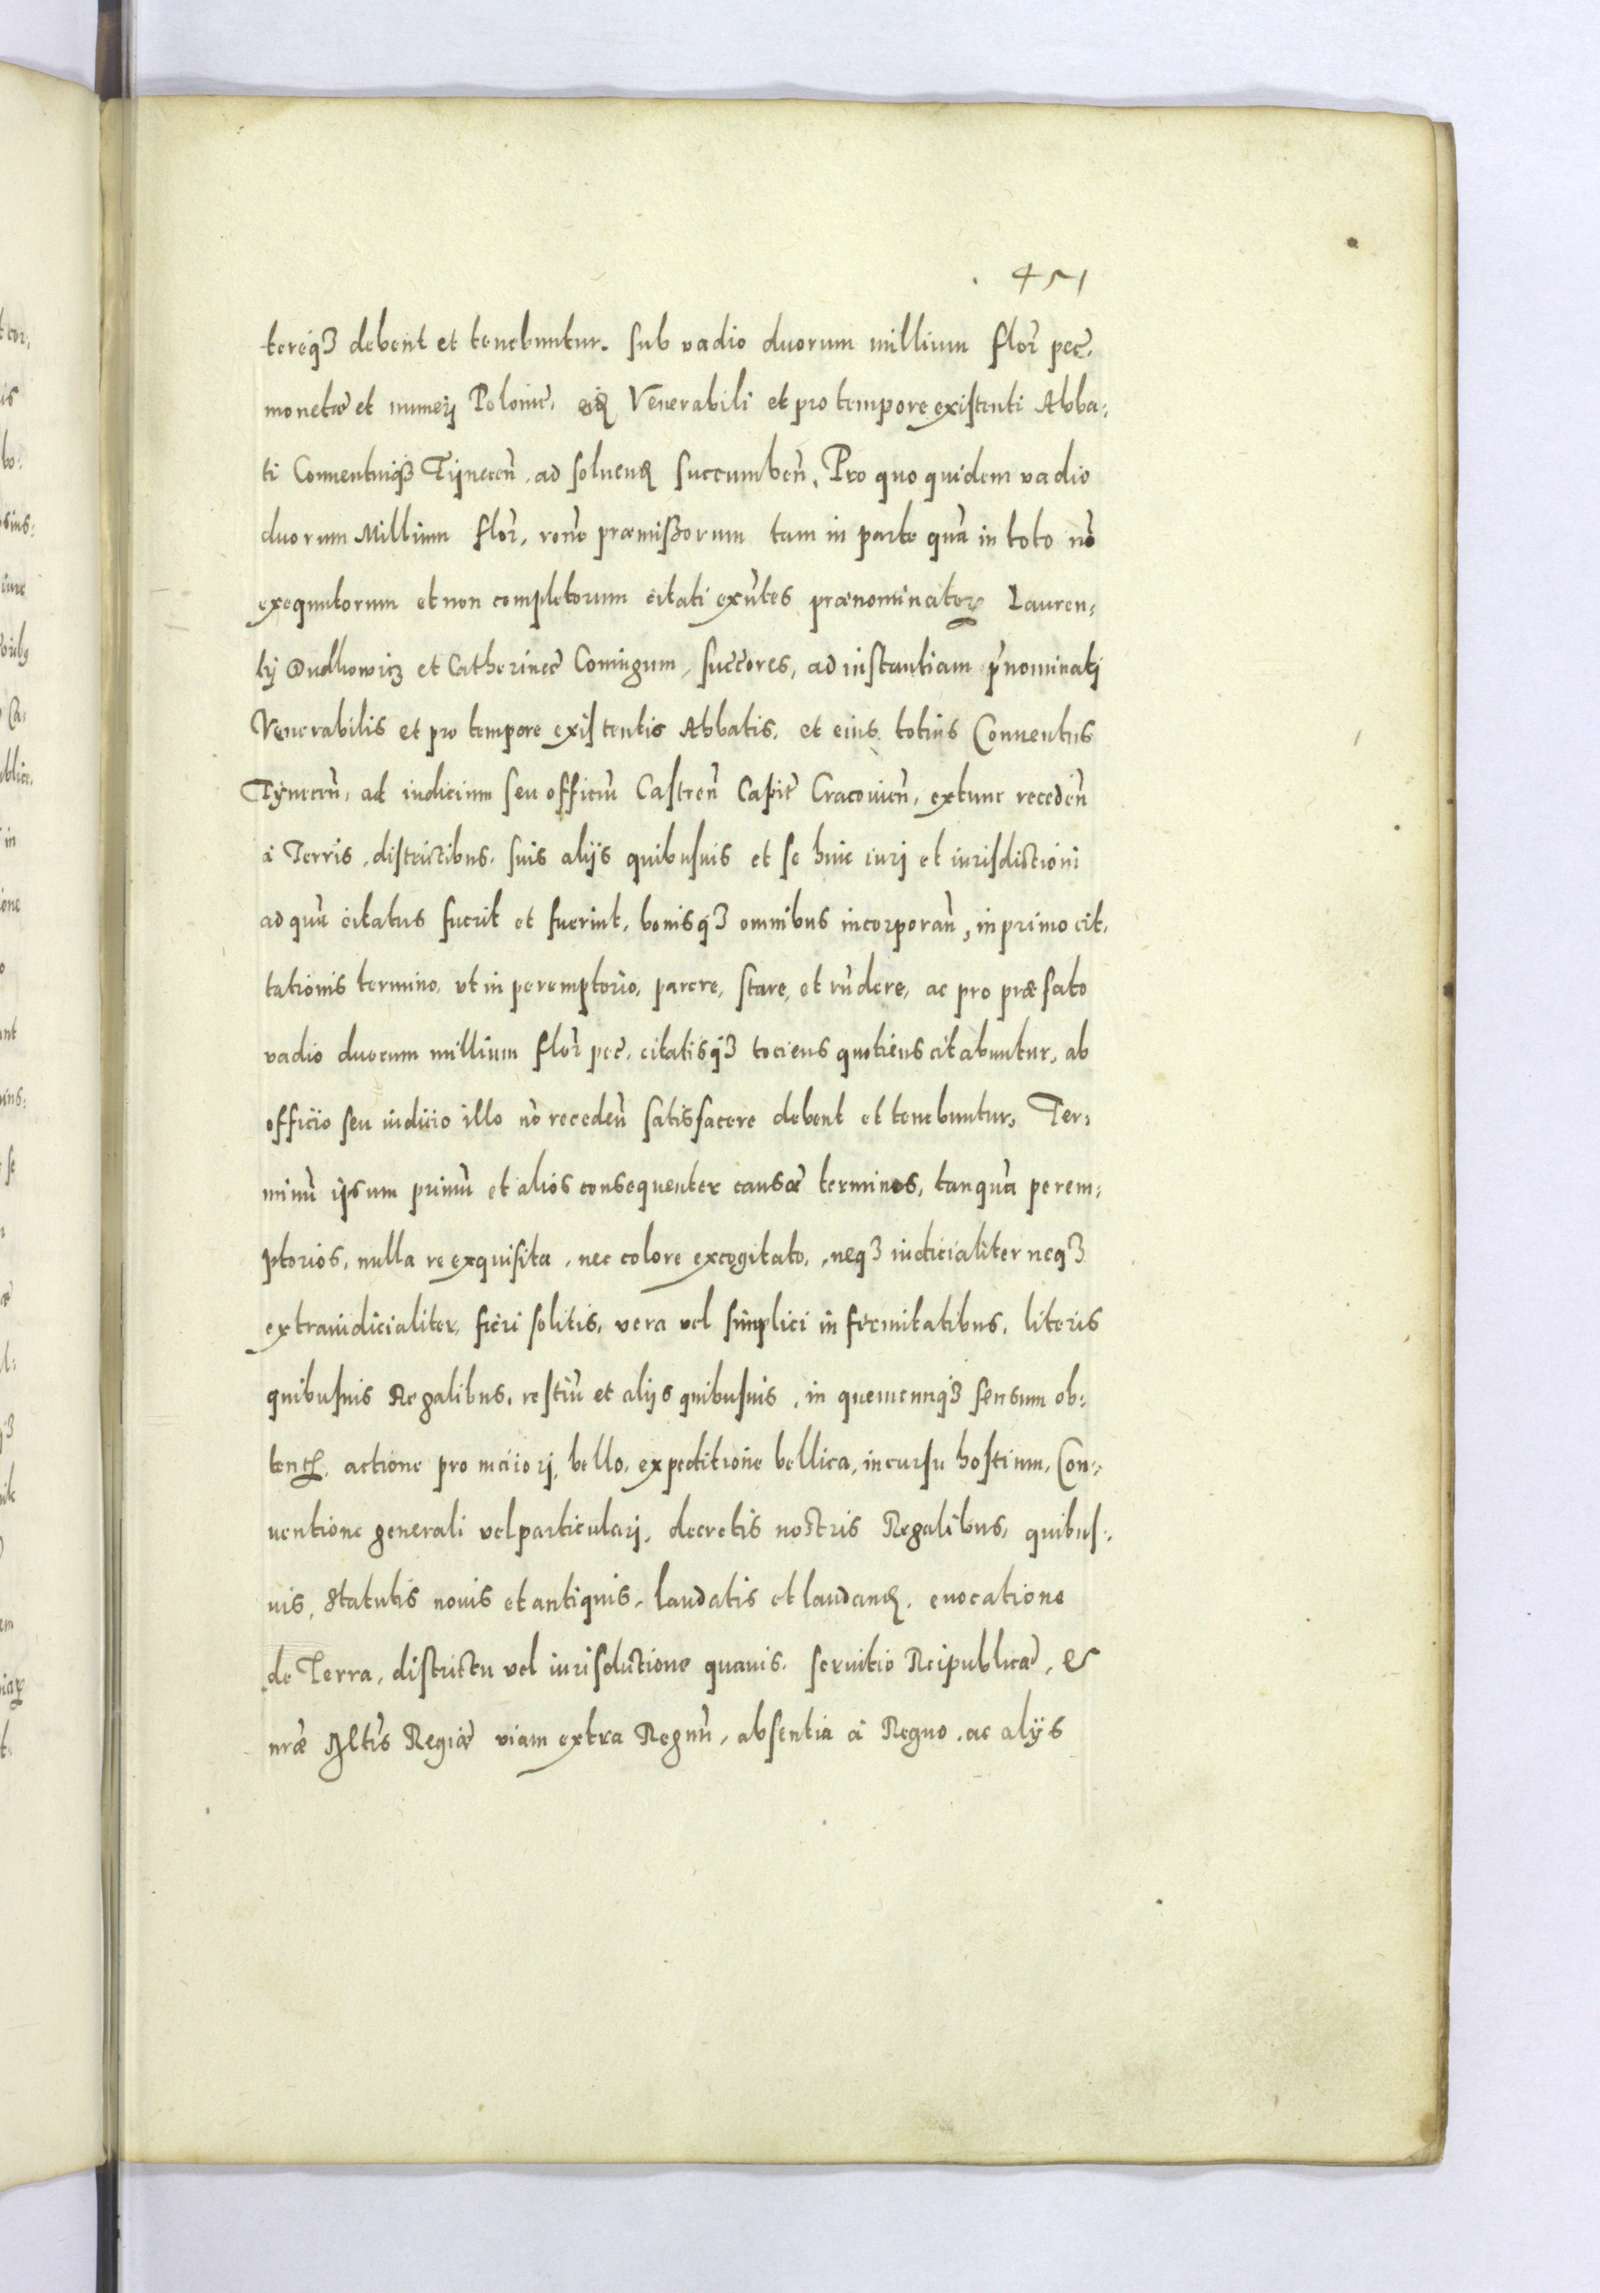 451
tereq₃ debent et tenebuntur. sub vadio duorum millium flor̃ pec̃.
monetæ et numerj Polonic̃. Venerabili et pro tempore existenti Abba-
ti Conuentuiq₃ Tijnecen̄. ad soluen̄ succumben̄. Pro quo quidem vadio
duorum Millium flor̃. ron̄e præmißorum tam in parte quā in toto nō
exequutorum et non completorum citati exn̄tes prænominatoꝝ Lauren-
tij et Catherinæ Coniugum, succ̄ores, ad instantiam p̄nominatj
Venerabilis et pro tempore existentis Abbatis. et eius totius Conuentus
Tÿnecen̄. ad iudicium seu officiū Castren̄ Capit̃ Cracouien̄. extunc receden̄
à Terris, districtibus. suis alijs quibusuis et se huic iurj et iurisdictioni
ad quā citatus fuerit et fuerint. bonisq₃ omnibus incorporan̄, in primo cit-
tationis termino, vt in peremptorio, parere, stare, et rn̄dere, ac pro præfato
vadio duorum millium flor̃ pec̃. citatisq₃ tociens quotiens citabuntur, ab
officio seu iudicio illo nō receden̄ satisfacere debent et tenebuntur, Ter-
minū ipsum primū et alios consequenter causæ terminos, tanquā perem-
ptorios, nulla re exquisita, nec colore excogitato, neq₃ iudicialiter neq₃
extraiudicialiter, fieri solitis, vera vel simplici infirmitatibus, literis
quibusuis Regalibus, restiū et alijs quibusuis, in quemcunq₃ sensum ob-
tent̃. actione pro maiorj, bello, expeditione bellica, incursu hostium, Con-
uentione generali vel particularj, decretis nostris Regalibus, quibus-
uis, statutis nouis et antiquis, laudatis et laudan̄. euocatione
de Terra, districtu vel iurisdictione quauis. seruitio Reipublicæ, &
nr̃æ Regiæ viam extra Regnū, absentia à Regno, ac alÿs